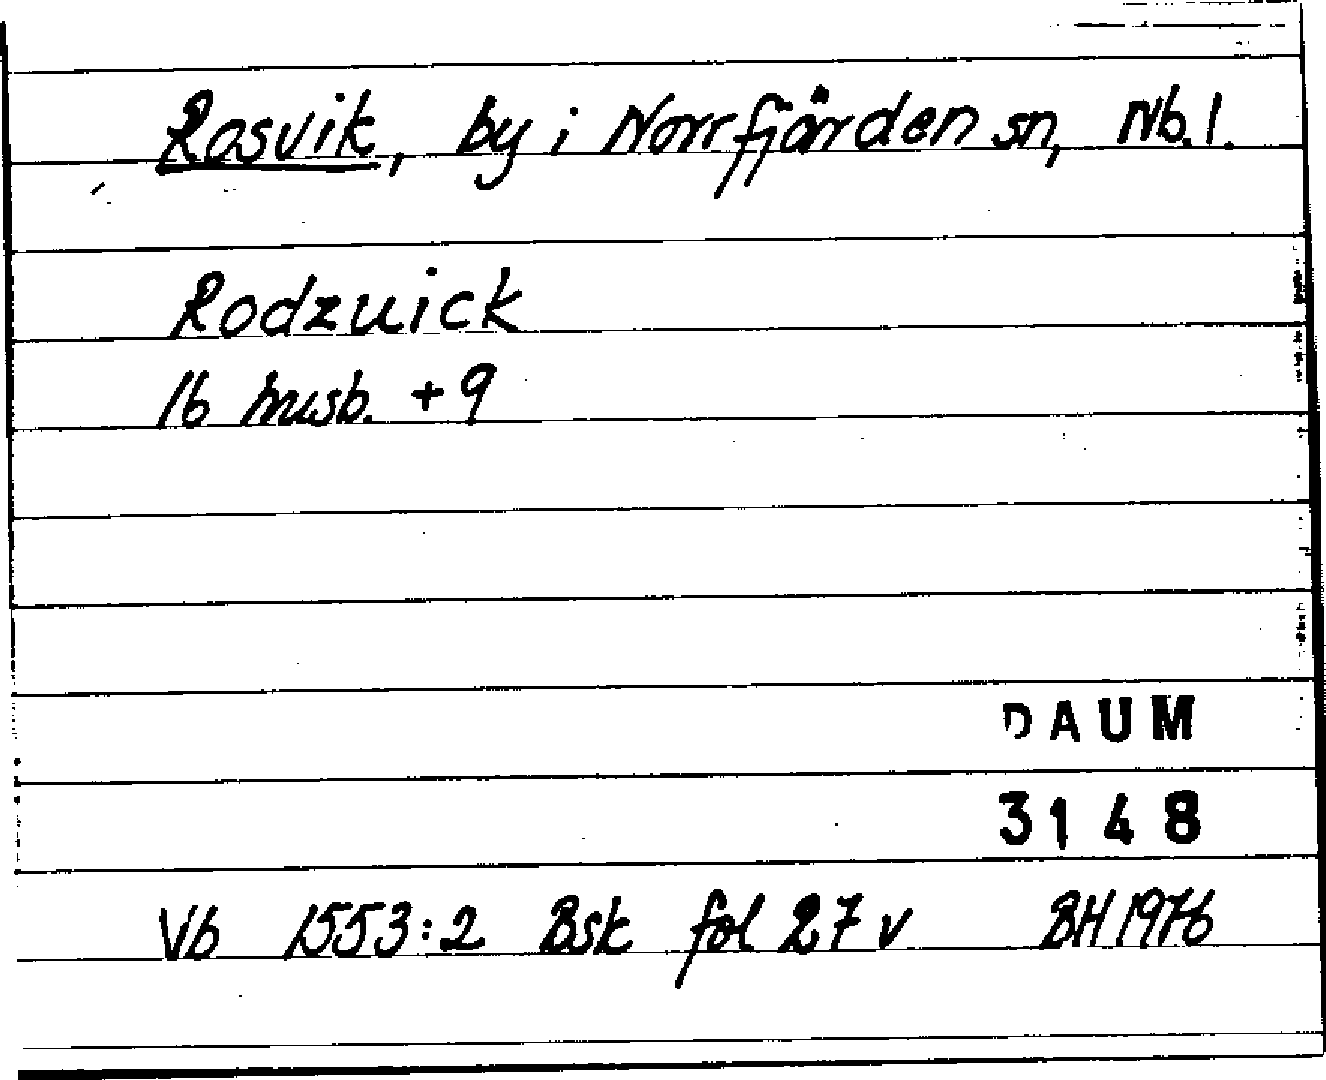 Rosvik, by i Norrfjärden sn, Nb.l.
Rodzuick
16 husb. + 9
DAUM
3148
Vb 1553:2 Bsk fol 27 v BH 1976